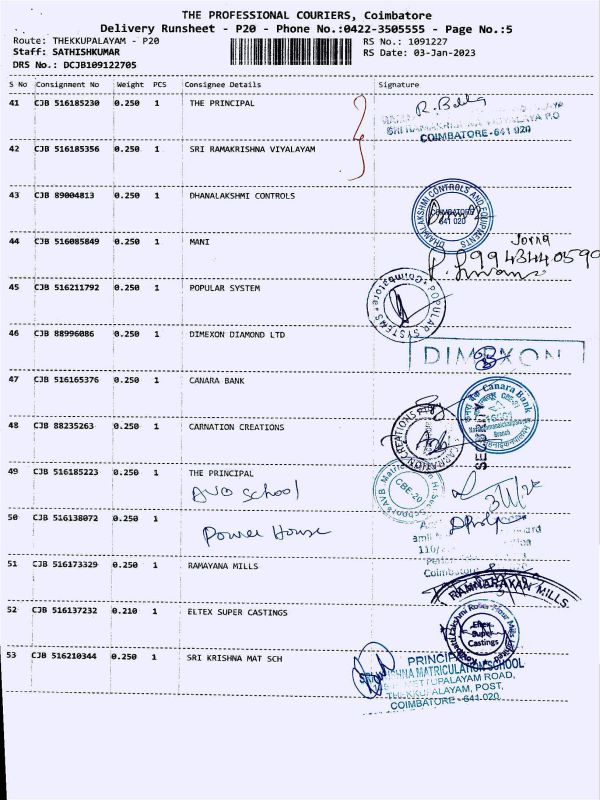 THE PROFESSIONAL COURIERS, Coimbatore
Delivery Runsheet - P20 - Phone No.:0422-3505555 - Page No.:5
Route: THEKKUPALAYAM - P20 RS No.: 1091227
Staff: SATHISHKUMAR RS Date: 03-Jan-2023
DRS No.: DCJB109122705
S No Consignment No Weight PCS Consignee Details Signature
41 CJB 516185230 0.250 1 THE PRINCIPAL
COIMBATORE-641 020
42 CJB 516185356 0.250 1 SRI RAMAKRISHNA VIYALAYAM
43 CJB 89004813 0.250 1 DHANALAKSHMI CONTROLS
DHANALAKSHMI CONTROLS AND EQUIPMENTS
COIMBATORE
641 020
44 CJB 516085849 0.250 1 MANI
9943440590
45 CJB 516211792 0.250 1 POPULAR SYSTEM
POPULAR SYSTEMS Coimbatore
46 CJB 88996086 0.250 1 DIMEXON DIAMOND LTD
DIMEXON
47 CJB 516165376 0.250 1 CANARA BANK
Canara Bank
Branch
SECURITY
48 CJB 88235263 0.250 1 CARNATION CREATIONS
CARNATION CREATIONS
49 CJB 516185223 0.250 1 THE PRINCIPAL
AVB School
CBE-20
50 CJB 516138072 0.250 1
Power House
51 CJB 516173329 0.250 1 RAMAYANA MILLS
RAMNARAYAN MILLS
52 CJB 516137232 0.210 1 ELTEX SUPER CASTINGS
Eltex
Super
Castings
53 CJB 516210344 0.250 1 SRI KRISHNA MAT SCH
PRINCIPAL
SRI KRISHNA MATRICULATION SCHOOL
METTUPALAYAM ROAD,
THEKKUPALAYAM, POST,
COIMBATORE - 641 020